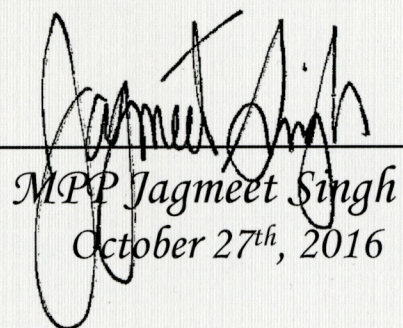 Jagmeet Singh
MPP Jagmeet Singh
October 27th, 2016